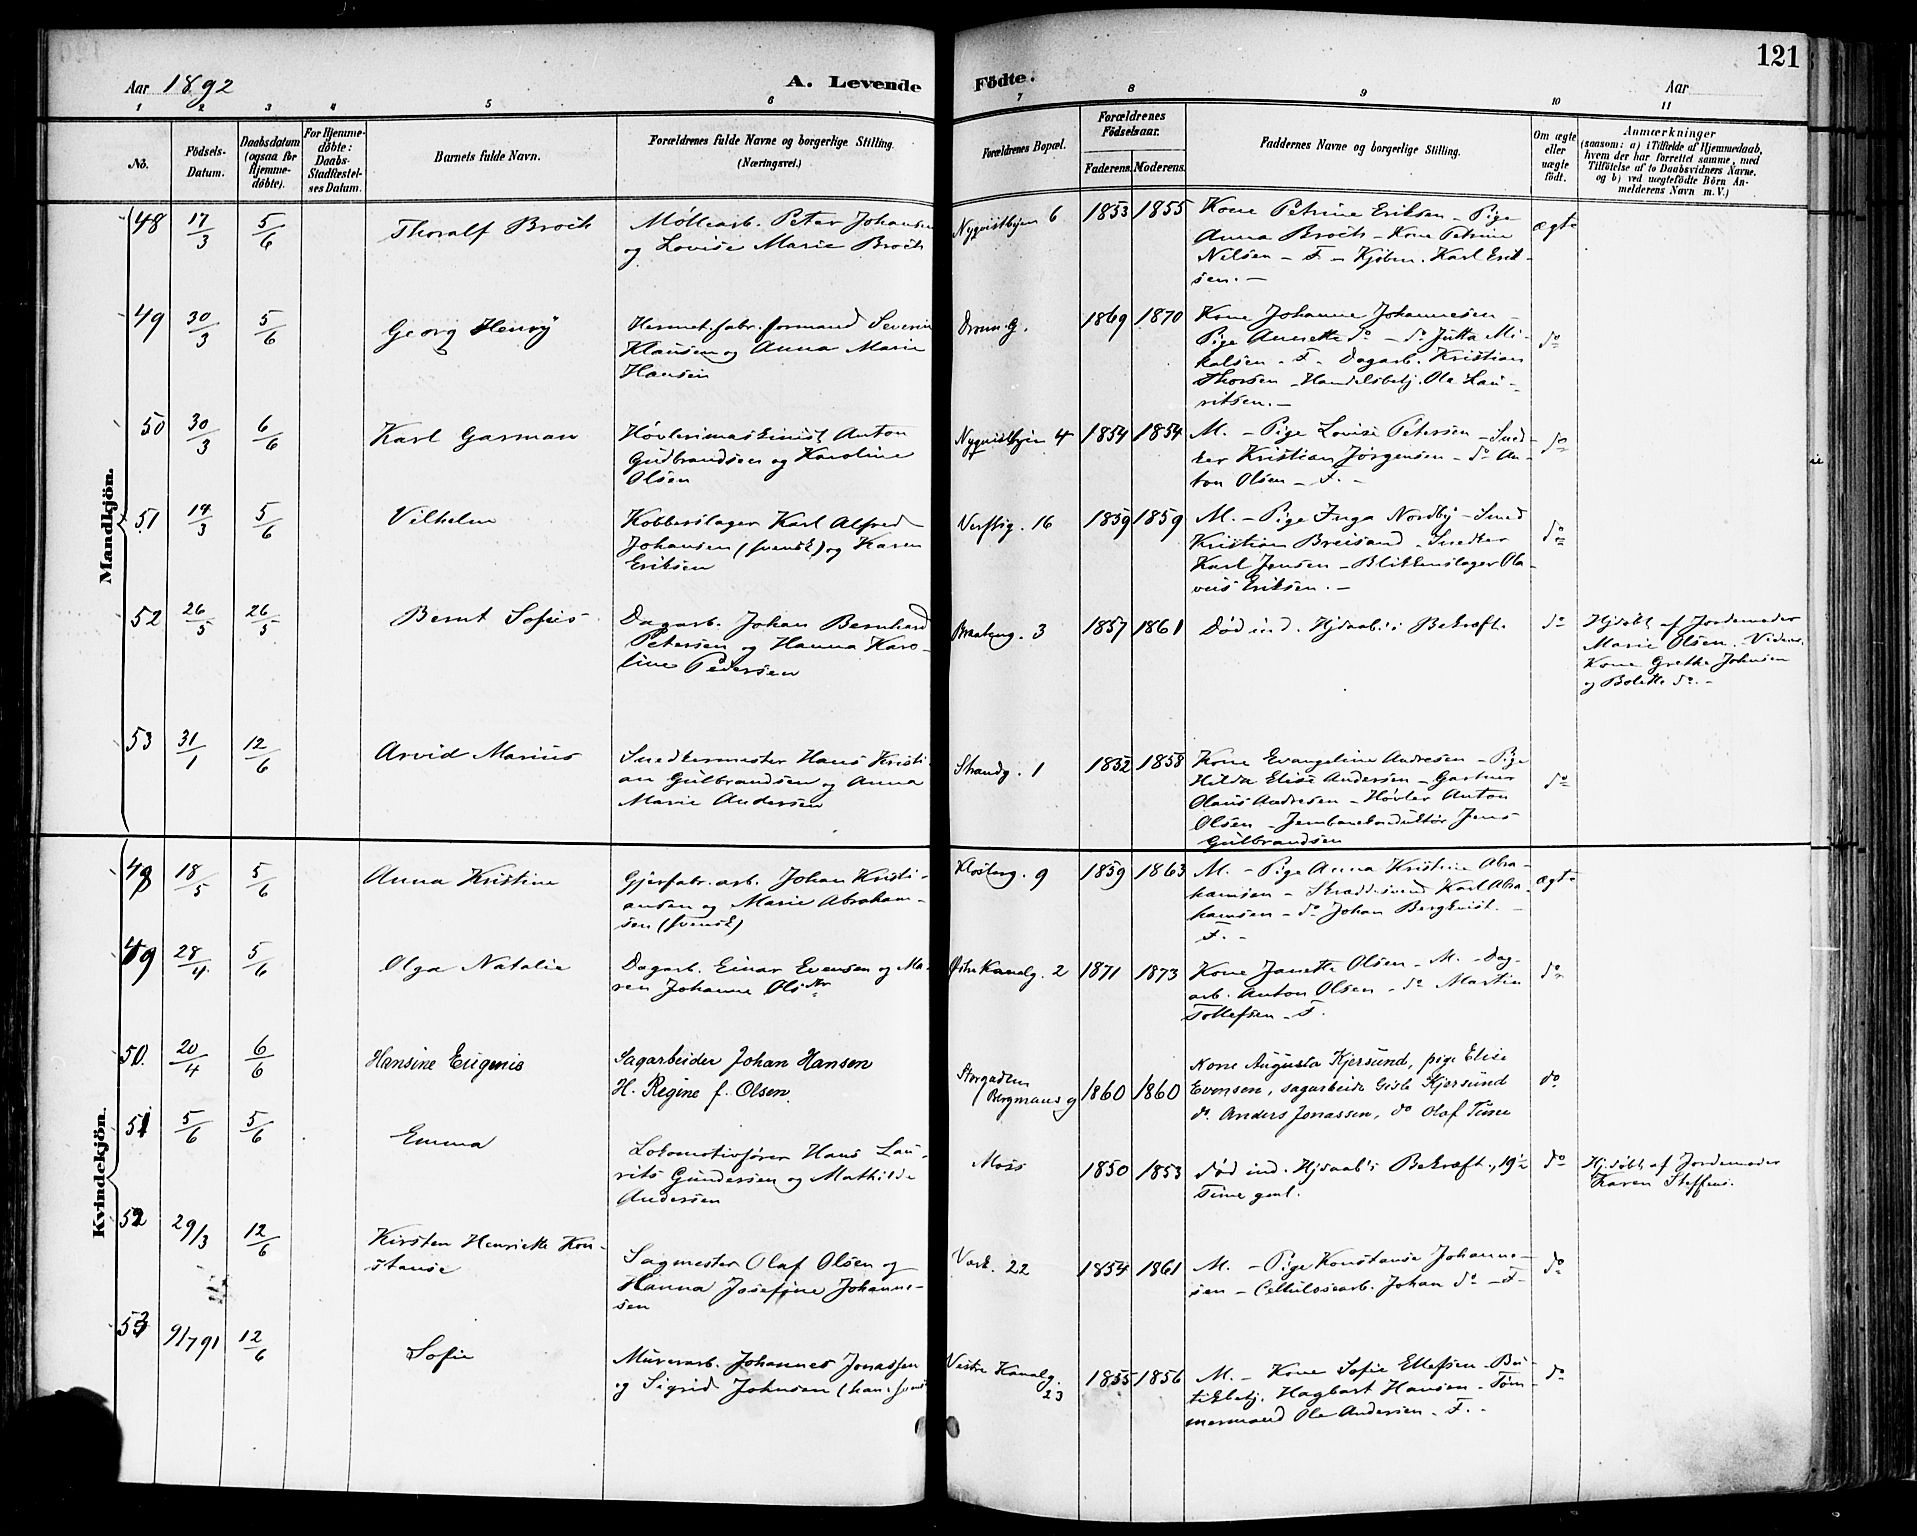 121
Aar 1892
A. Levende
Fødte.
Aar
1 2 3 4 5 6 7 8 9 10 11
No.
Födsels-
Datum.
Daabsdatum
(ogsaa for
Hjemme-
döbte).
For Hjemme-
döbte:
Daabs-
Stadfæstel-
ses Datum.
Barnets fulde Navn.
Forældrenes fulde Navne og borgerlige Stilling.
(Næringsvei.)
Forældrenes Bopæl.
Forældrenes
Födselsaar.
Faderens.
Moderens.
Faddernes Navne og borgerlige Stilling.
Om ægte
eller
uægte
födt.
Anmærkninger
(saasom: a) i Tilfælde af Hjemmedaab,
hvem der har forrettet samme, med
Tilföielse af to Daabsvidners Navne.
og b) ved uægtefödte Börn An-
melderens Navn m. V.)
Mandkjön.
48 17/3 5/6 Thoralf Broch
Möllearb. Peter Johansen
og Lovise Marie Broch
Nyqvistbyen 6 1853 1855
Kone Petrine Eriksen – Pige
Anna Broch – Kone Petrine
Nilsen – F – Kjöbm. Karl Erik-
sen. –
ægte
49 30/3 5/6 Georg Henry
Hermet.fabr.formand Severin
Klausen og Anna Marie
Hansen
Dronn.G. 1869 1870
Kone Johanne Johannesen –
Pige Annette do – do Jutta Mi-
kalsen – F. Dagarb. Kristian
Thorsen – Handelsbetj. Ole Lau-
ritsen. –
do
50 30/3 6/6 Karl Garman
Høvlerimaskinist Anton
Gudbrandsen og Karoline
Olsen
Nyqvistbyen 4 1854 1854
M. – Pige Lovise Petersen – Sned-
ker Kristian Jørgensen – do An-
ton Olsen – F. –
do
51 14/3 5/6 Vilhelm
Kobberslager Karl Alfred
Johansen (svensk) og Karen
Eriksen
Verftsg. 16 1859 1859
M. – Pige Inga Nordby – Smed
Kristian Breisand – Snedker
Karl Jensen – Blikkenslager Ola-
vus Eriksen. –
do
52 26/5 26/5 Bernt Sofus
Dagarb. Johan Bernhard
Petersen og Hanna Karo-
line Pedersen
Braateng. 3 1857 1861
Død ind. Hjdaab's Bekræft.
do
Hjdøbt af Jordemoder
Marie Olsen. Vidner
Kone Grethe Johnsen
og Bolette do. –
53 31/1 12/6 Arvid Marius
Snedkermester Hans Kristi-
an Gulbrandsen og Anna
Marie Andersen
Strandg. 1 1852 1858
Kone Evangeline Andresen – Pige
Hilda Elise Andersen – Gartner
Olaus Andresen – Høvler Anton
Olsen – Jernbanekonduktør Jens
Gulbrandsen
do
Kvindekjön.
48 18/5 5/6 Anna Kristine
Gjærfabr.arb. Johan Kristi-
ansen og Marie Abraham-
sen (svensk)
Klosterg. 9 1859 1863
M. – Pige Anna Kristine Abra-
hamsen – Skræddersvend Karl Abra-
hamsen – do Johan Bergkvist. –
F. –
ægte
49 28/4 5/6 Olga Natalie
Dagarb. Einar Evensen og Ma-
ren Johanne Olsdtr
Østre Kanalg. 2 1871 1873
Kone Janette Olsen – M. – Dag-
arb. Anton Olsen – do Martin
Tollefsen – F.
do
50. 20/4 6/6 Hansine Eugenie
Sagarbeider Johan Hansen
H. Regine f. Olsen
Storgaden
Bergmans g 1860 1860
Kone Augusta Kjersund, pige Elise
Evensen, sagarbeide Gisle Kjersund
do. Anders Jonassen, do Olaf Tune
do
51 5/6 5/6 Emma
Lokomotivfører Hans Lau-
rits Gundersen og Mathilde
Andersen
Moss 1850 1853
Død ind. Hjdaab's Bekræft., 19½
Time gml.
do
Hjdøbt af Jordemoder
Karen Steffens.
52 29/3 12/6 Kirsten Henriette Kon-
stanse
Sagmester Olaf Olsen og
Hanna Josefine Johanne-
sen
Vark. 22 1854 1861
M. – Pige Konstanse Johanne-
sen – Cellulosearb. Johan do – F.
do
53 9/7 91 12/6 Sofie
Murerarb. Johannes Jonassen
og Sigrid Johnsen (han svensk
Vestre Kanalg.
23 1855 1856
M. – Kone Sofie Ellefsen – Bu-
tikbetj. Hagbart Hansen – Tøm-
mermand Ole Andersen – F. –
do